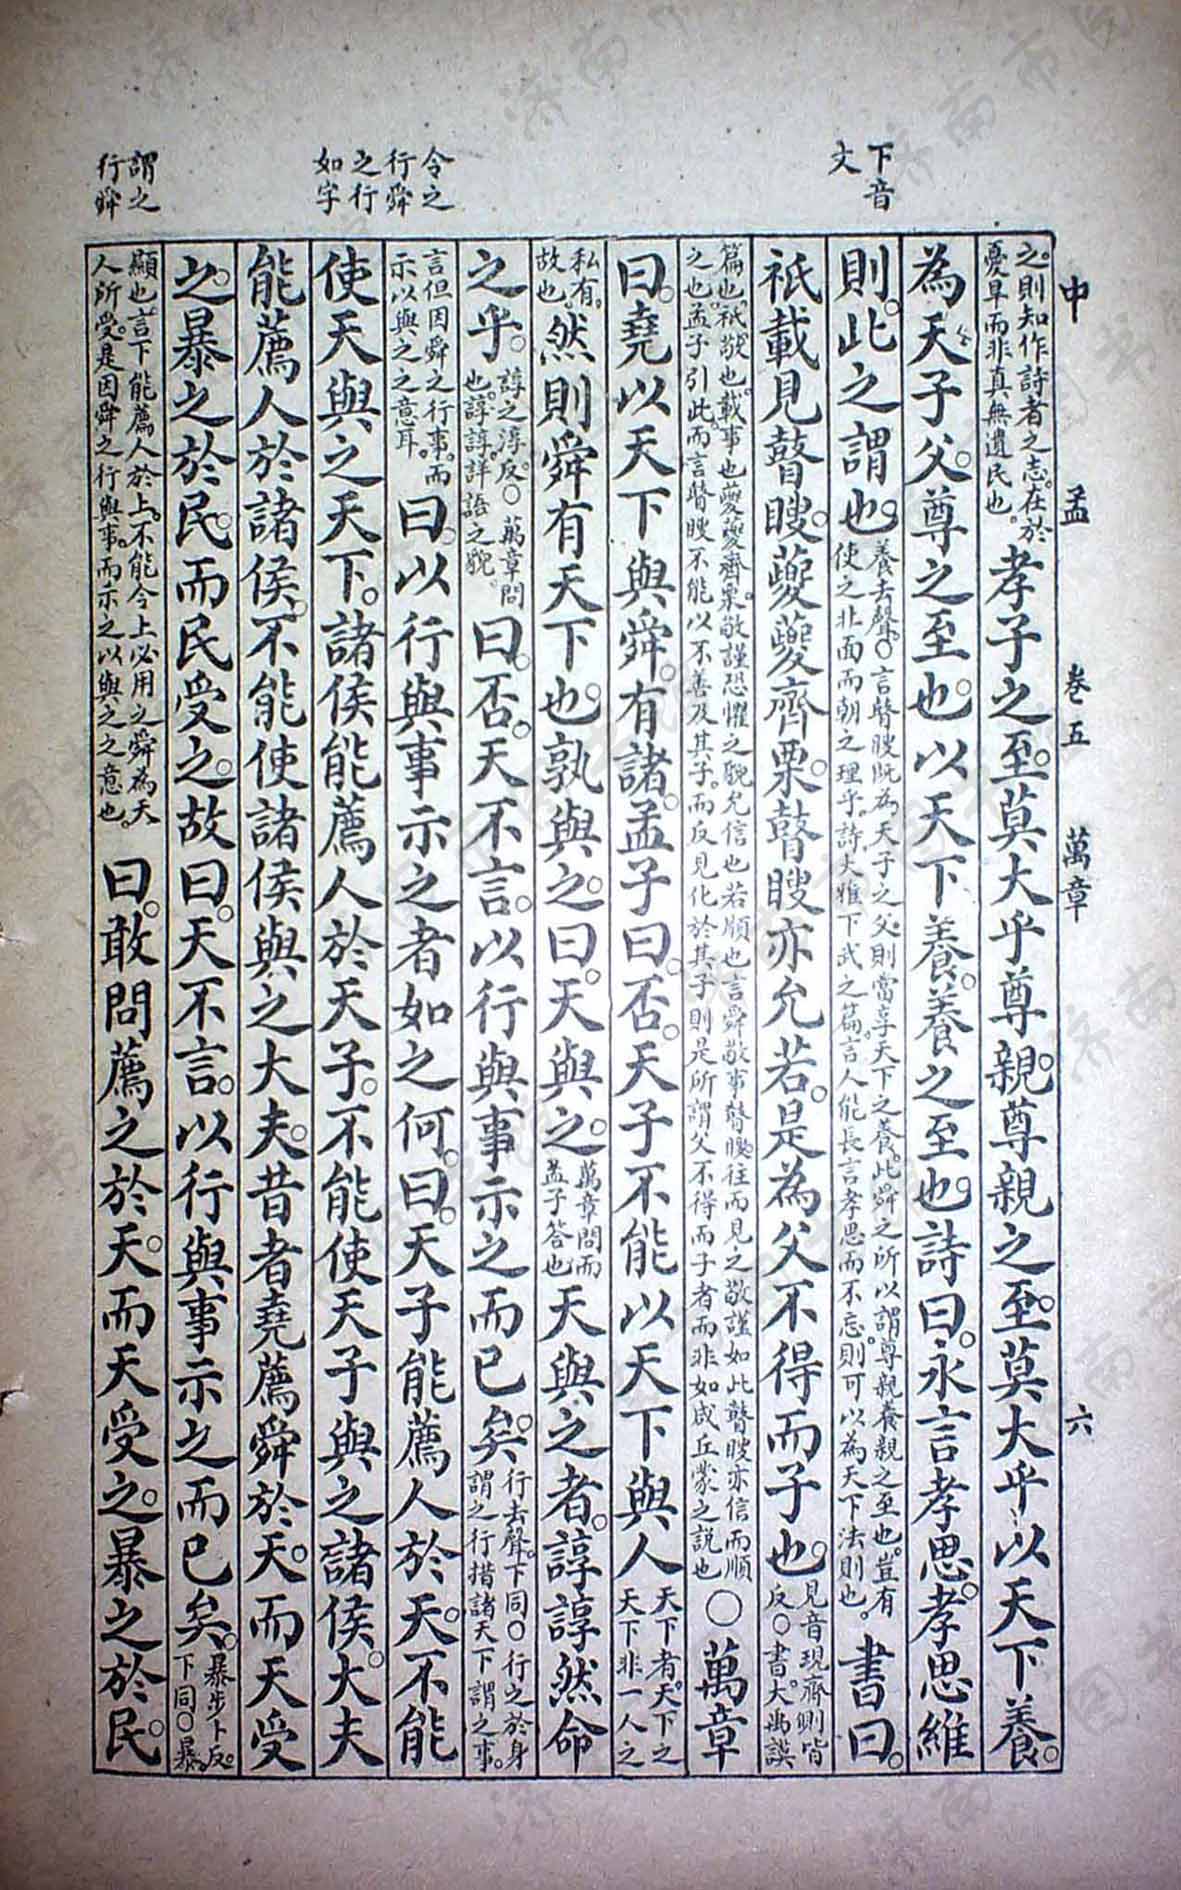 中 孟 卷五 萬章 六
下音
文
令之
行舜
之行
如字
謂之
行舜
之則知作詩者之志在於憂旱而非真無遺民也。孝子之至。莫大乎尊親。尊親之至。莫大乎以天下養。
為天子父。尊之至也。以天下養。養之至也。詩曰。永言孝思。孝思維
則。此之謂也。養去聲。○言瞽瞍既為天子之父。則當享天下之養。此舜之所以謂尊親養親之至也。豈有使之北面而朝之理乎。詩大雅下武之篇。言人能長言孝思而不忘。則可以為天下法則也。書曰。
祗載見瞽瞍。夔夔齊栗。瞽瞍亦允若。是為父不得而子也。見音現齊側皆反。○書。大禹謨
篇也。祗敬也。載事也夔夔齊栗。敬謹恐懼之貌允信也若順也言舜敬事瞽瞍。往而見之敬謹如此瞽瞍亦信而順之也。孟子引此。而言瞽瞍不能以不善及其子。而反見化於其子則是所謂父不得而子者而非如咸丘蒙之說也○萬章
曰。堯以天下與舜。有諸。孟子曰。否。天子不能以天下與人天下者。天下之天下非一人之
私有。故也。然則舜有天下也。孰與之。曰。天與之。萬章問而孟子答也天與之者。諄諄然命
之乎。諄之淳反。○萬章問也。諄諄。詳語之貌。曰。否。天不言。以行與事示之而已矣。行去聲。下同○行之於身謂之行措諸天下謂之事。
言但因舜之行事。而示以與之之意耳。曰。以行與事示之者如之何。曰。天子能薦人於天。不能
使天與之天下。諸侯能薦人於天子。不能使天子與之諸侯。大夫
能薦人於諸侯。不能使諸侯與之大夫。昔者堯薦舜於天。而天受
之。暴之於民。而民受之。故曰。天不言。以行與事示之而已矣。暴步卜反。下同○暴。
顯也。言下能薦人於上。不能令上必用之舜為天人所受。是因舜之行與事。而示之以與之之意也。曰。敢問薦之於天。而天受之。暴之於民。